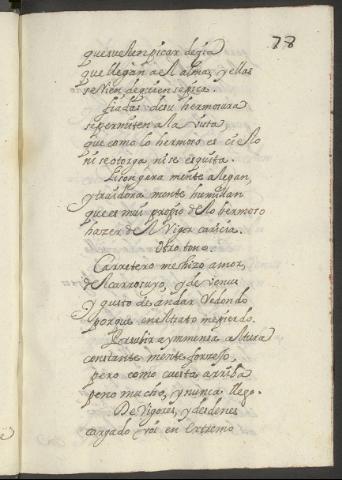 78
que suelen picar de sia
que llegan a el alma, y ellas
se Rien de quien se
fiadas de su hermosura
se permiten a la vista
que como lo hermoso es cielo
ni se otorga, ni se quita.
Lisongera mente alegan,
y traidora mente humillan
que es mui propio de lo hermoso
hazer de el Rigor caricia.
Otro tono.
Carretero me hizo amor,
de el carro tuyo, y de venus
y gusto de andar Redondo
porque en el trato me pierdo.
Por subir a ymmensa altura
constante mente
pero como cuesta arriba
peno mucho, y nunca llego.
De Rigores, y desdenes
cargado voi en extremo